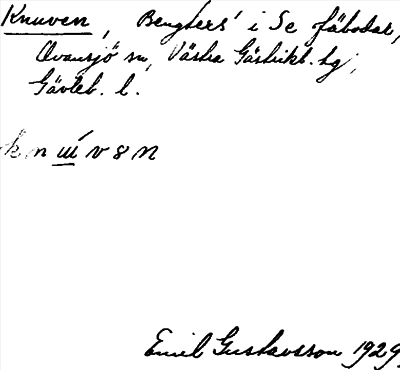 Knuven, Bengters' i Se fäbodar,
Ovansjö sn, Västra Gästrikl. hg,
Gävleb. l.
kn ɯ́ v ɘ n
Emil Gustavsson 1929.